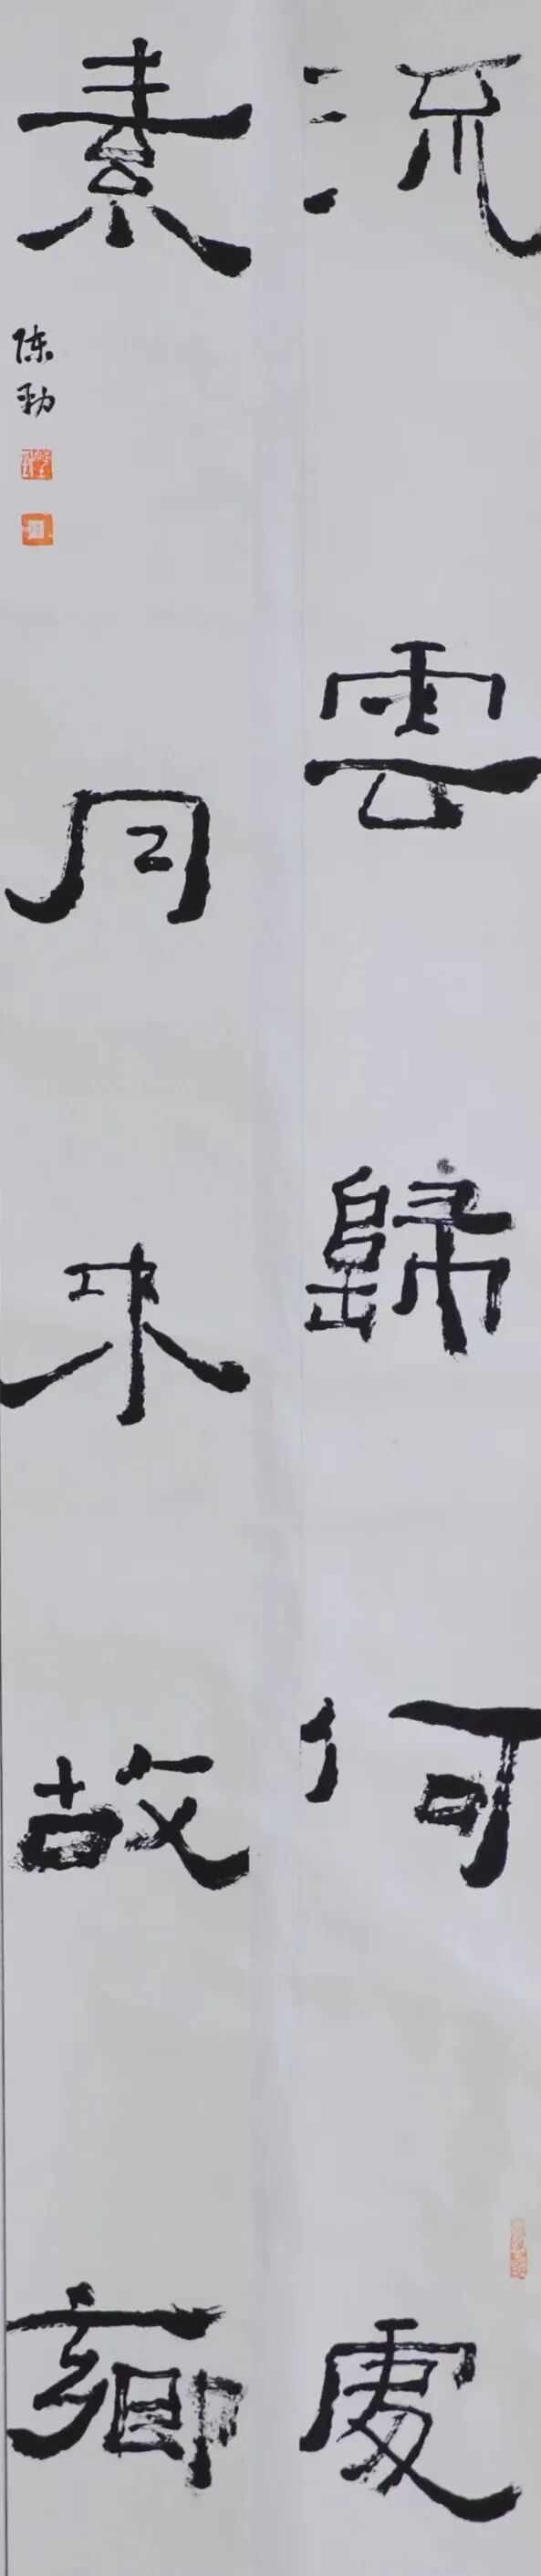 流雲歸何處
素月來故鄉
陈勁